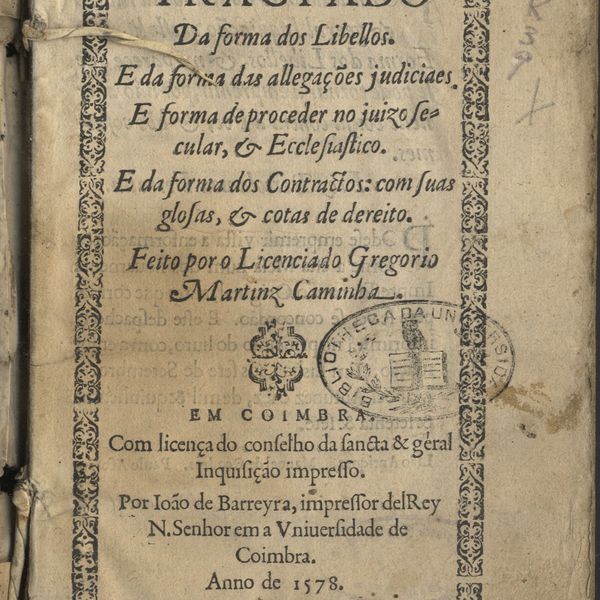 TRACTADO
Da forma dos Libellos.
E da forma das allegações judiciaes.
E forma de proceder no juizo se-
cular, & Ecclesiastico.
E da forma dos Contractos: com suas
glosas, & cotas de dereito.
Feito por o Licenciado Gregorio
Martinz Caminha.
BIBLIOTHECA DA UNIVERSIDA
EM COIMBRA.
Com licença do conselho da sancta & géral
Inquisição impresso.
Por Ioão de Barreyra, impressor delRey
N. Senhor em a Vniuersidade de
Coimbra.
Anno de 1578.